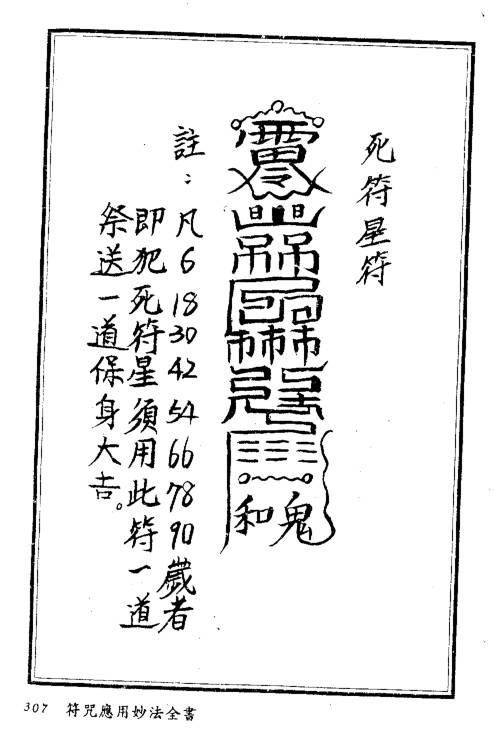 死符星符
敕令
鬼和
註：凡6 18 30 42 54 66 78 90歲者
即犯死符星須用此符一道
祭送一道保身大吉。
307 符咒應用妙法全書